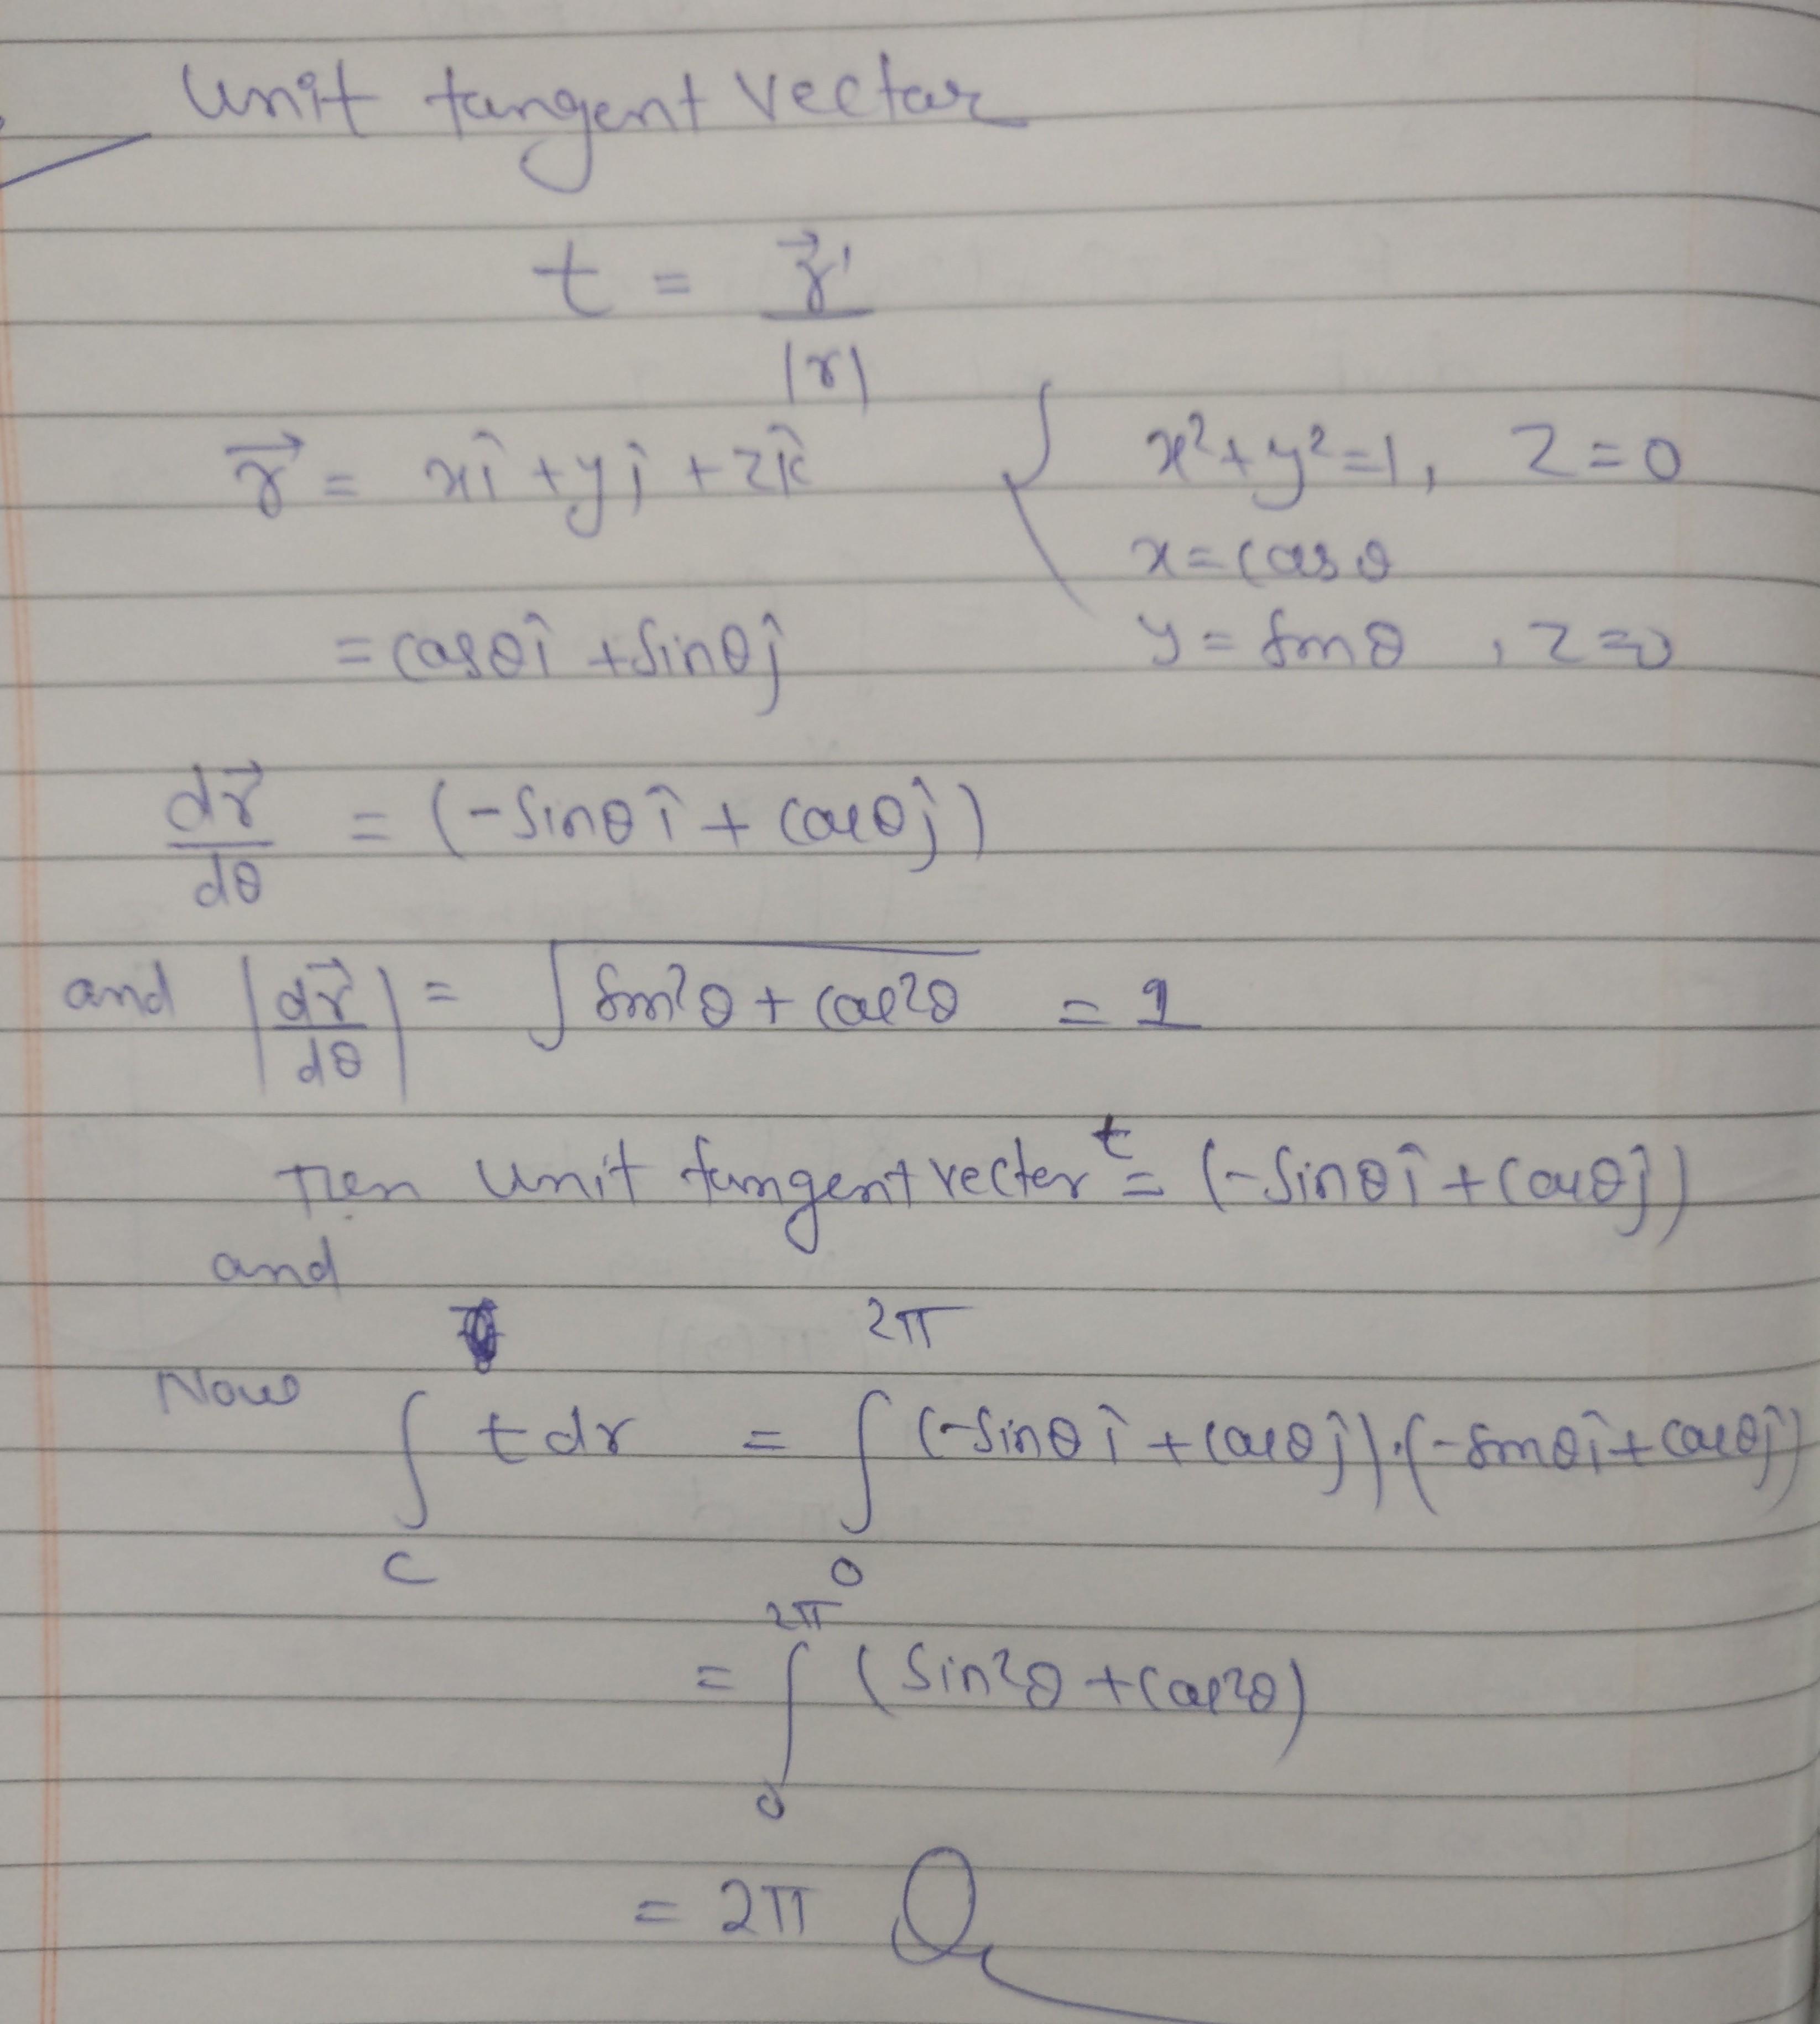 Unit tangent vector
t = r⃗' / |r|
r⃗ = xî + yĵ + zk̂ { x²+y²=1, z=0
x = cosθ
= cosθî + sinθĵ y = sinθ, z=0
dr⃗/dθ = (-sinθî + cosθĵ)
and |dr⃗/dθ| = √(sin²θ + cos²θ) = 1
Then unit tangent vector t = (-sinθî + cosθĵ)
and
Now ∫_C t dr = ∫_0^2π (-sinθî + cosθĵ)·(-sinθî + cosθĵ)
= ∫_0^2π (sin²θ + cos²θ)
= 2π